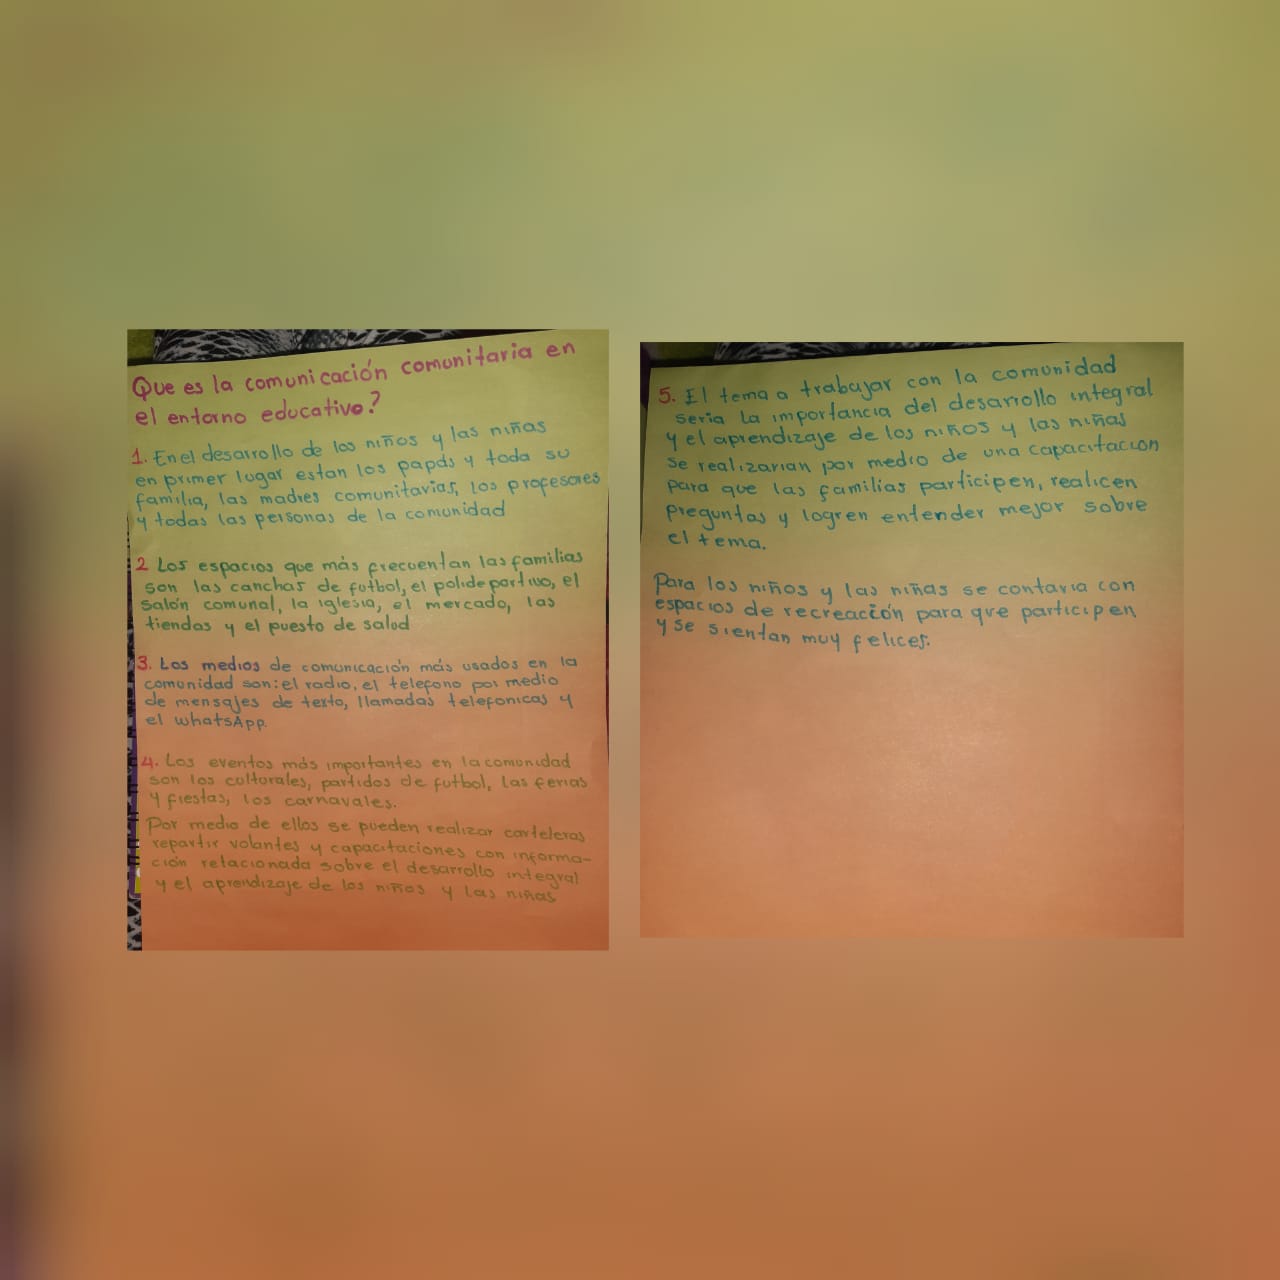 Que es la comunicación comunitaria en
el entorno educativo?
1. En el desarrollo de los niños y las niñas
en primer lugar estan los papás y toda su
familia, las madres comunitarias, los profesores
y todas las personas de la comunidad
2 Los espacios que más frecuentan las familias
son las canchas de futbol, el polideportivo, el
salón comunal, la iglesia, el mercado, las
tiendas y el puesto de salud
3. Los medios de comunicación más usados en la
comunidad son: el radio, el telefono por medio
de mensajes de texto, llamadas telefonicas y
el whatsApp.
4. Los eventos más importantes en la comunidad
son los culturales, partidos de futbol, las ferias
y fiestas, los carnavales.
Por medio de ellos se pueden realizar carteleras
repartir volantes y capacitaciones con informa-
ción relacionada sobre el desarrollo integral
y el aprendizaje de los niños y las niñas
5. El tema a trabajar con la comunidad
seria la importancia del desarrollo integral
y el aprendizaje de los niños y las niñas
se realizarian por medio de una capacitacion
para que las familias participen, realicen
preguntas y logren entender mejor sobre
el tema.
Para los niños y las niñas se contaria con
espacios de recreación para que participen
y se sientan muy felices.